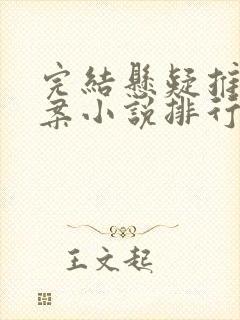 完結懸疑推
案小說排行
王文起